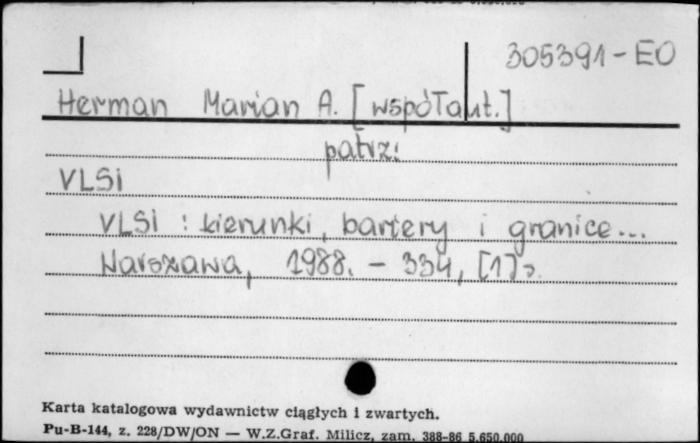 305391-EO
Herman Marian A. [współaut.]
patrz:
VLSI
VLSI : kierunki, bariery i granice...
Warszawa, 1988. - 334, [1] s.
Karta katalogowa wydawnictw ciągłych i zwartych.
Pu-B-144, z. 228/DW/ON — W.Z.Graf. Milicz, zam. 388-86 5.650.000